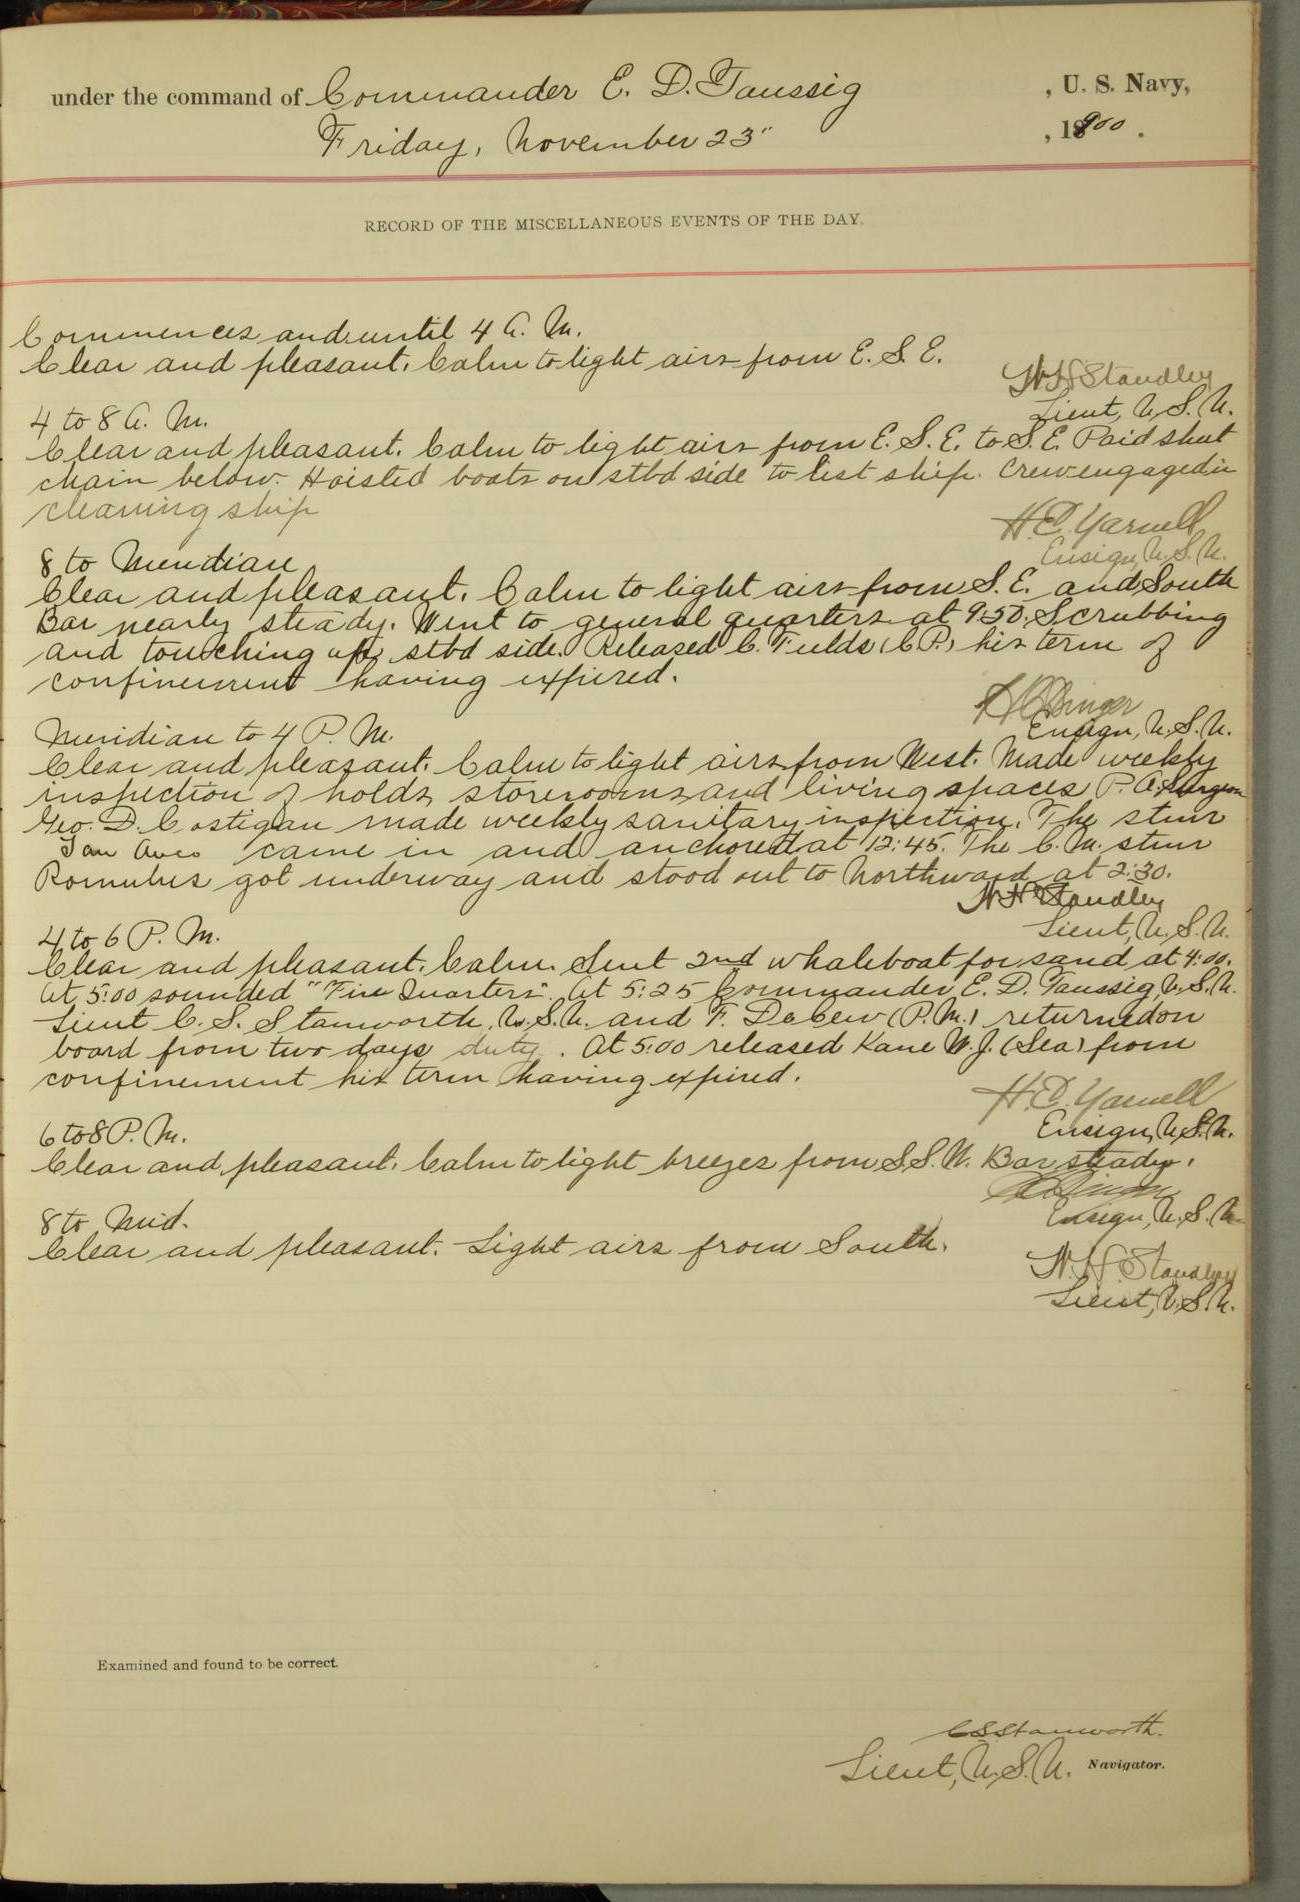 under the command of Commander E. D. Taussig, U. S. Navy,
Friday, November 23", 1900.
RECORD OF THE MISCELLANEOUS EVENTS OF THE DAY.
Commences and until 4 A. M.
Clear and pleasant. Calm to light airs from E. S. E.
W H Standley
Lieut, U. S. N.
4 to 8 A. M.
Clear and pleasant. Calm to light airs from E. S. E. to S. E. Paid sheet
chain below. Hoisted boats on stbd side to list ship. Crew engaged in
cleaning ship
H. E. Yarnell
Ensign, U. S. N.
8 to Meridian
Clear and pleasant. Calm to light airs from S. E. and South
Bar nearly steady. Went to general quarters at 9:50. Scrubbing
and touching up stbd side. Released C. Fields (C.P.) his term of
confinement having expired.
Ensign, U. S. N.
Meridian to 4 P. M.
Clear and pleasant. Calm to light airs from West. Made weekly
inspection of holds, storerooms and living spaces P. A. Surgeon
Geo. D. Costigan made weekly sanitary inspection. The stmr
came in and anchored at 12:45. The C. M. stmr
Romulus got underway and stood out to Northward at 2:30.
W H Standley
Lieut, U. S. N.
4 to 6 P. M.
Clear and pleasant. Calm. Sent 2nd whaleboat for sand at 4:00.
At 5:00 sounded "Fire Quarters". At 5:25 Commander E. D. Taussig, U. S. N.
Lieut C. S. Stanworth, U. S. N. and F. (P. M.) returned on
board from two days duty. At 5:00 released Kane W. J. (Sea) from
confinement his term having expired.
H. E. Yarnell
Ensign, U. S. N.
6 to 8 P. M.
Clear and pleasant. Calm to light breezes from S. S. W. Bar steady.
Ensign, U. S. N.
8 to Mid.
Clear and pleasant. Light airs from South.
W. H. Standley
Lieut, U. S. N.
Examined and found to be correct.
C S Stanworth.
Lieut, U. S. N. Navigator.